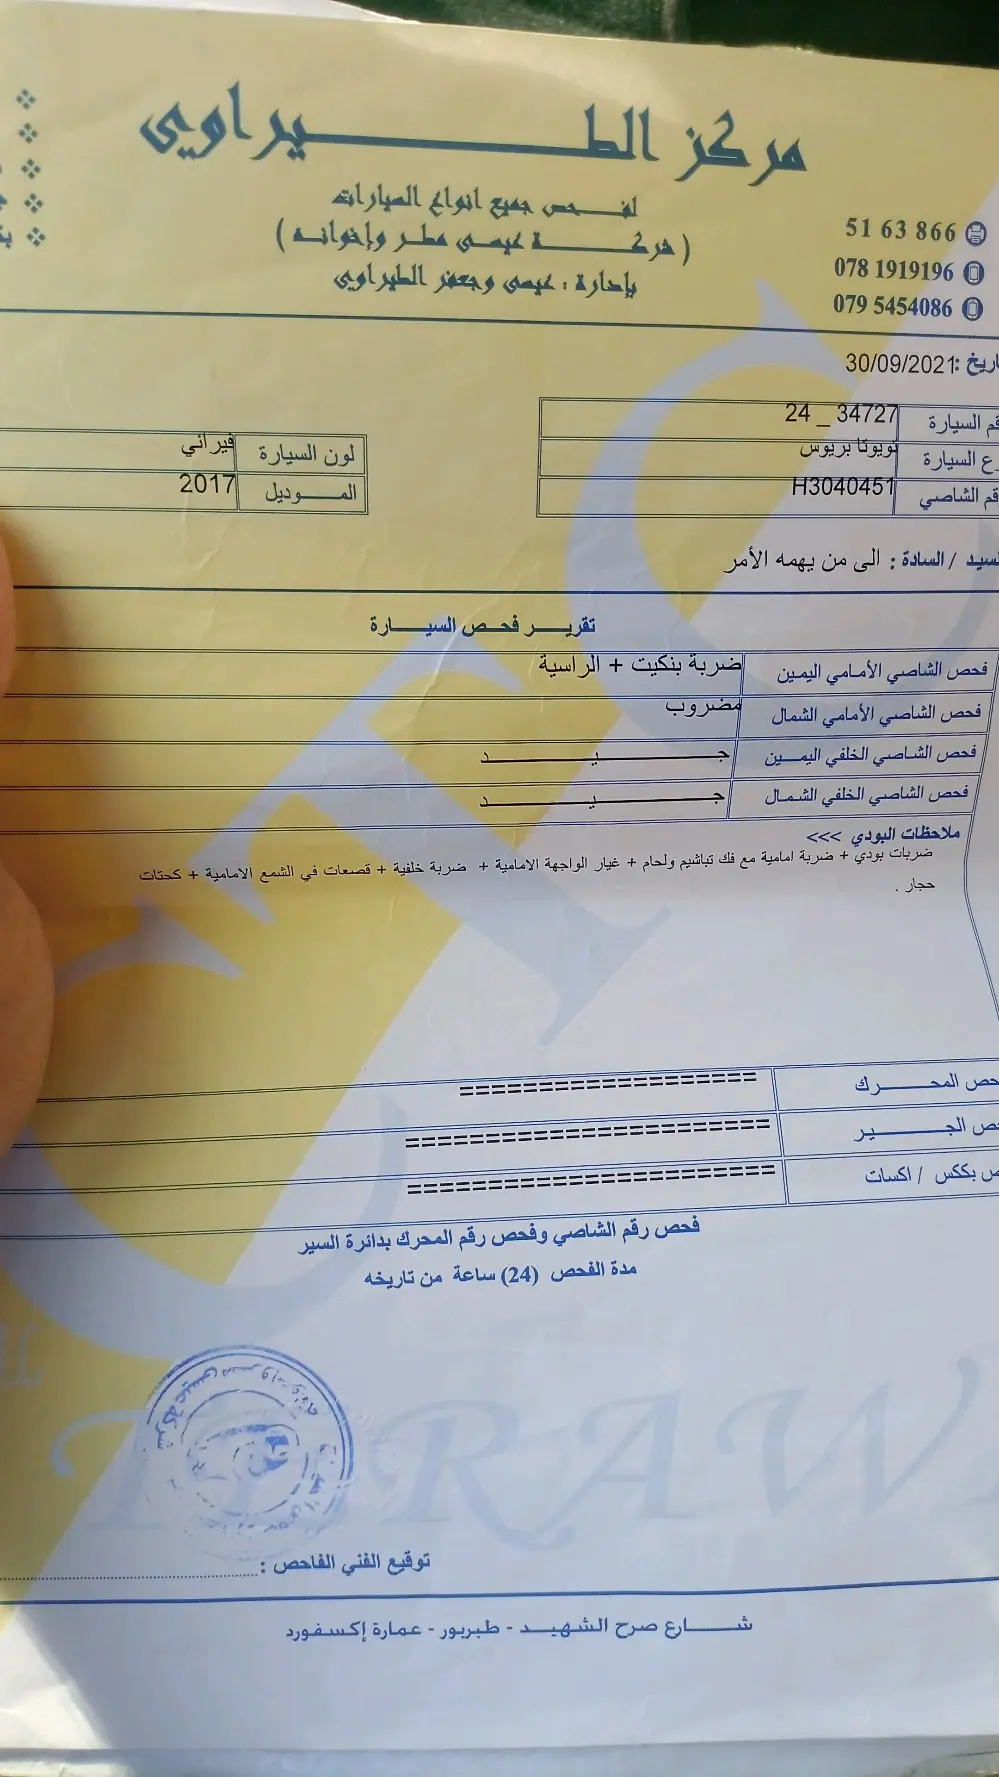 مركز الطيراوي
لفحص جميع انواع السيارات
( شركة عيسى مطر وإخوانه )
بإدارة : عيسى وجعفر الطيراوي
51 63 866
078 1919196
079 5454086
30/09/2021
24 _ 34727 السيارة
السيارة تويوتا بريوس
الشاصي H3040451
لون السيارة فيراني
الموديل 2017
/ السادة : الى من يهمه الأمر
تقرير فحص السيارة
فحص الشاصي الأمامي اليمين ضربة بنكيت + الراسية
فحص الشاصي الأمامي الشمال مضروب
فحص الشاصي الخلفي اليمين جيد
فحص الشاصي الخلفي الشمال جيد
ملاحظات البودي >>>
ضربات بودي + ضربة امامية مع فك تباشيم ولحام + غيار الواجهة الامامية + ضربة خلفية + قصعات في الشمع الامامية + كحتات
حجار .
المحرك ==================
الجير =======================
بككس / اكسات =======================
فحص رقم الشاصي وفحص رقم المحرك بدائرة السير
مدة الفحص (24) ساعة من تاريخه
توقيع الفني الفاحص :
شارع صرح الشهيد - طبربور - عمارة إكسفورد